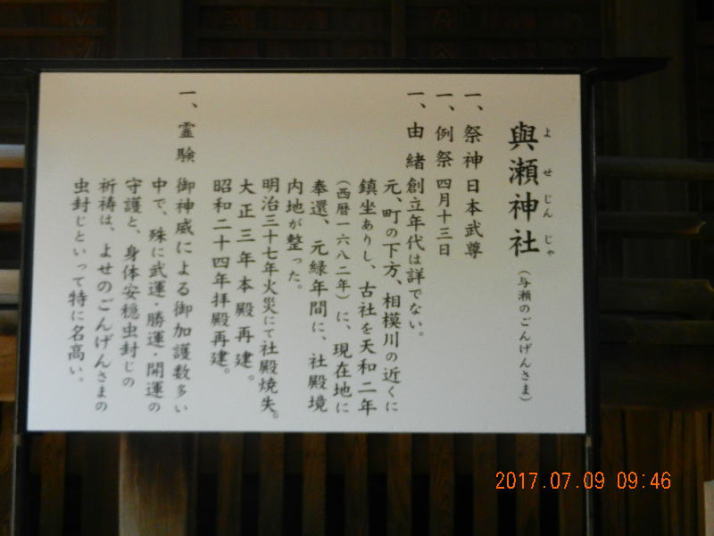 與瀬神社
よせじんじゃ
(与瀬のごんげんさま)
一、祭神 日本武尊
一、例祭 四月十三日
一、由緒 創立年代は詳でない。
元、町の下方、相模川の近くに
鎮坐ありし、古社を天和二年
(西暦一六八二年)に、現在地に
奉還、元緑年間に、社殿境
内地が整った。
明治三十七年火災にて社殿焼失。
大正三年本殿再建。
昭和二十四年拝殿再建。
一、霊験 御神威による御加護数多い
中で、殊に武運・勝運・開運の
守護と、身体安穏虫封じの
祈祷は、よせのごんげんさまの
虫封じといって特に名高い。
2017.07.09 09:46